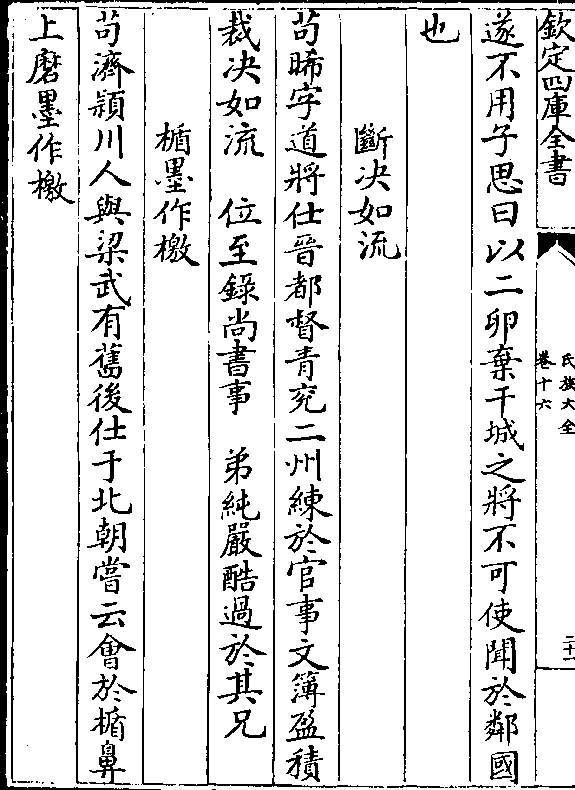 欽定四庫全書
氏族大全
卷十六
二十一
遂不用子思曰以二卵棄干城之將不可使聞於鄰國
也
斷决如流
茍晞字道將仕晉都督青兖二州練於官事文簿盈積
裁决如流　位至錄尚書事　弟純嚴酷過於其兄
楯墨作檄
茍濟穎川人與梁武有舊後仕于北朝嘗云會於楯鼻
上磨墨作檄